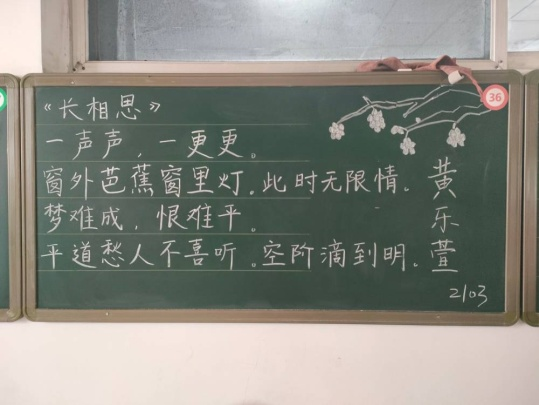 《长相思》
一声声，一更更。
窗外芭蕉窗里灯。此时无限情。
梦难成，恨难平。
平道愁人不喜听。空阶滴到明。
黄乐萱
2103
36